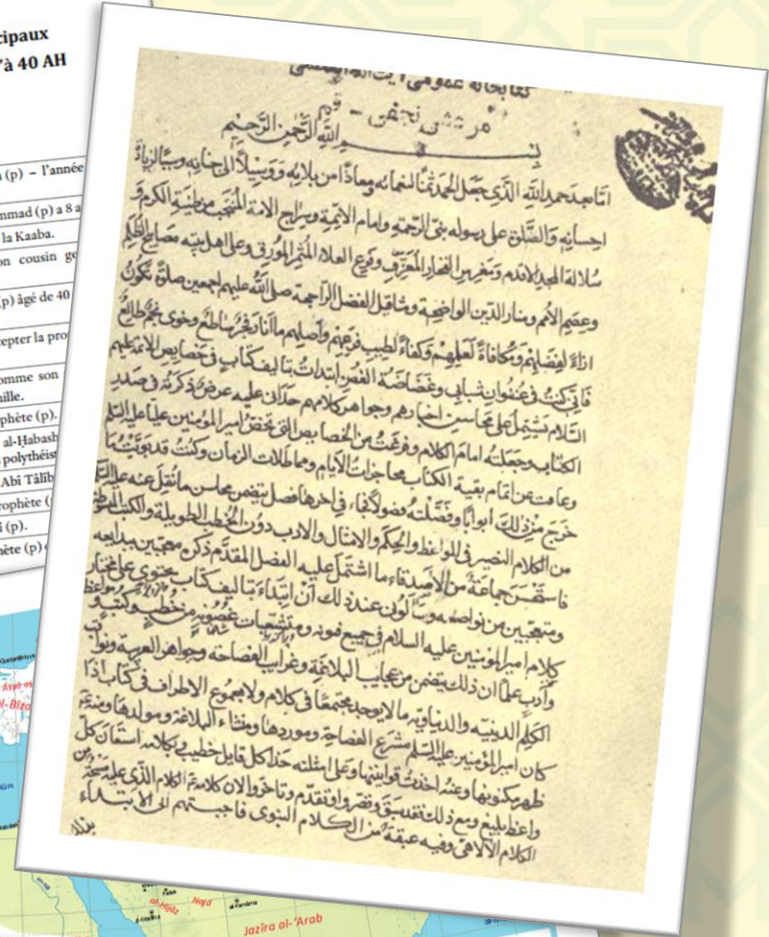 cipaux
'à 40 AH
(p) – l'année
mmad (p) a 8 a
la Kaaba.
on cousin ge
(p) âgé de 40
cepter la pro
omme son
ille.
phète (p).
al-Ḥabash
polythéis
Abî Tâlib
rophète (
i (p).
hète (p)
مرعشی نجفی - قم
بسم الله الرَّحْمٰنِ الرَّحِيمِ
امّا بعد حمد الله الَّذي جَعَل الحمدَ ثمنًا لنعمائه ومعاذًا من بلائه ووسيلًا الى جنانه وسببًا لزيادة
احسانه والصّلوة على رسوله نبيّ الرّحمة وامام الائمّة وسراج الامة المنتجب من طينة الكرم و
سلالة المجد الاقدم ومغرس الفخار المعرق وفرع العلاء المثمر المورق وعلى اهل بيته مصابيح الظلم
وعصم الأمم ومنار الدين الواضحة ومثاقيل الفضل الراجحة صلى الله عليهم اجمعين صلوةً تكون
ازاءً لفضلهم ومكافاةً لعملهم وكفاءً لطيب فرعهم واصلهم ما أنار فجرٌ ساطع وخوى نجمٌ طالع
فانّي كنت في عنفوان شبابي وغضاضة الغصن ابتدات بتاليف كتاب في خصايص الائمة عليهم
السّلام يشتمل على محاسن اخبارهم وجواهر كلامهم حداني عليه غرض ذكرته في صدر
الكتاب وجعلته امام الكلام وفرغت من الخصايص التي تخصّ امير المؤمنين عليًا عليه السّلم
وعاقت عن اتمام بقية الكتاب محاجزات الايام ومماطلات الزمان وكنت قد بوّبت ما
خرج من ذلك أبوابًا وفصّلته فصولًا فجاء في اخرها فصل يتضمن محاسن ما نقل عنه عليه السلام
من الكلام القصير في المواعظ والحِكَم والامثال والادب دون الخطب الطويلة والكتب المبسوطة
فاستحسن جماعةٌ من الاصدقاء ما اشتمل عليه الفصل المقدّم ذكره معجبين ببدايعه
ومتعجّبين من نواصعه وسالوني عند ذلك أن ابتداء بتاليف كتاب يحتوي على مختار
كلام امير المؤمنين عليه السلام في جميع فنونه ومتشعبات غصونه من خطب وكتب و
وأدبٍ علمًا ان ذلك يتضمن من عجايب البلاغة وغرايب الفصاحة وجواهر العربية
الكلم الدينية والدنياوية ما لا يوجد مجتمعًا في كلام ولا مجموع الاطراف في كتاب اذ
كان امير المؤمنين عليه السّلم مشرع الفصاحة وموردها ومنشاء البلاغة ومولدها ومنه
ظهر مكنونها وعنه اخذت قوانينها وعلى امثلته حذا كل قايل خطيب وبكلامه استعان كل
واعظ بليغ ومع ذلك فقد سبق وقصّروا وتقدّم وتاخّروا لان كلامه الكلام الذي عليه مسحة من
الكلام الالاهي وفيه عبقة من الكلام النبوي فاجبتهم الى الابتداء
al-Ḥijâz
Najd
Jazîra al-'Arab